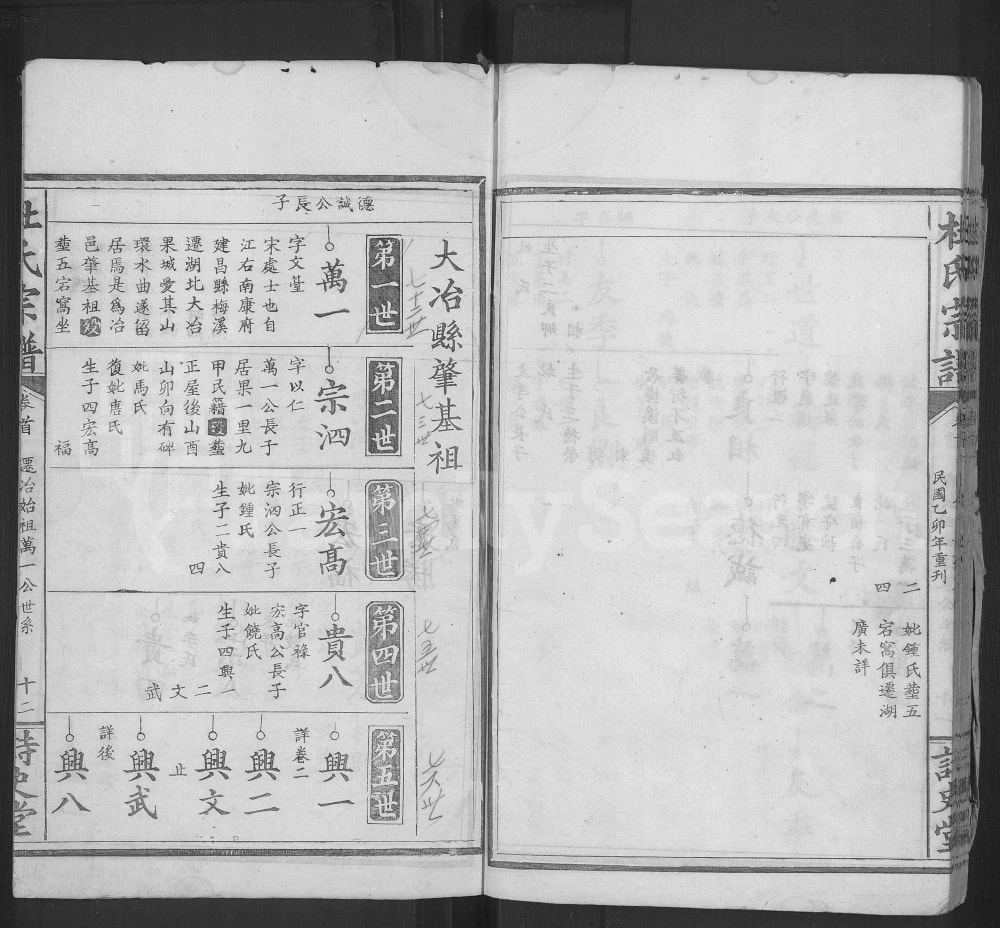 杜氏宗譜
民國乙卯年重刊
詩史堂
二
四
妣鍾氏塟五
宕窩俱遷湖
廣未詳
大冶縣肇基祖
七十二世
七三世
七四世
七五世
七六世
德誠公長子
第一世
萬一
字文堂
宋處士也自
江右南康府
建昌縣梅溪
遷湖北大冶
果城愛其山
環水曲遂留
居焉是爲冶
邑肇基祖歿
塟五宕窩坐
第二世
宗泗
字以仁
萬一公長子
居果一里九
甲民籍歿塟
正屋後山酉
山卯向有碑
妣馬氏
復妣唐氏
生子四宏高
福
第三世
宏高
行正一
宗泗公長子
妣鍾氏
生子二貴八
四
第四世
貴八
字官祿
宏高公長子
妣饒氏
生子四興一
二
文
武
第五世
興一
詳卷二
興二
興文
止
興武
詳後
興八
杜氏宗譜
卷首
遷冶始祖萬一公世系
十二
詩史堂